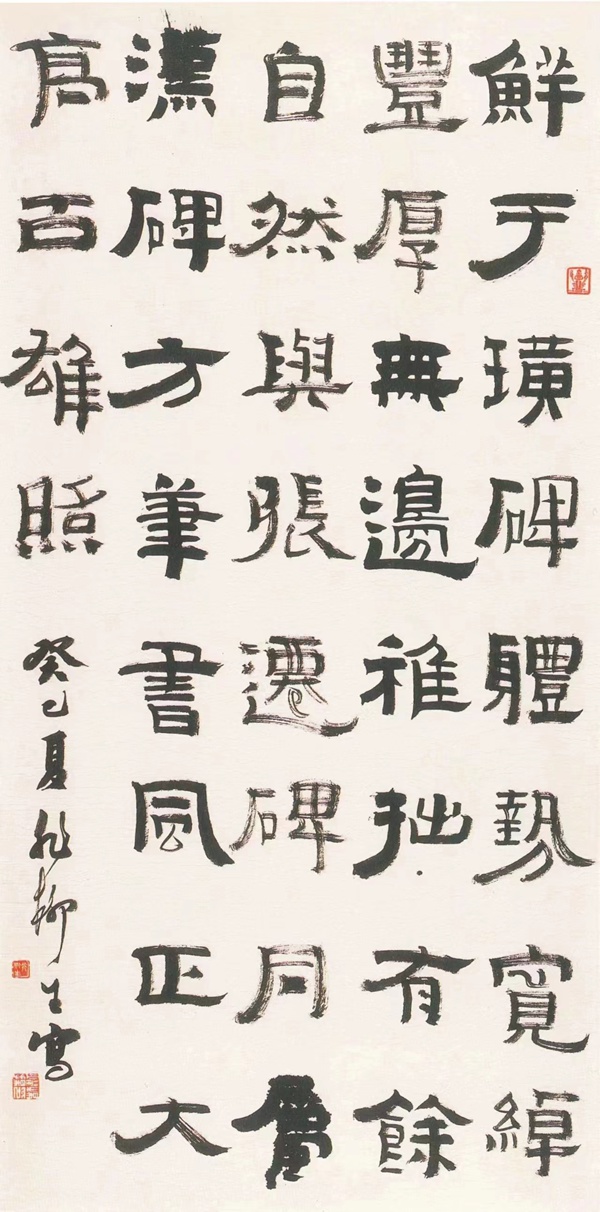 鮮于璜碑體勢寬綽
豐厚無邊稚拙有餘
自然與張遷碑同屬
漢碑方筆書風正大
高古雄照
癸巳夏柳生寫